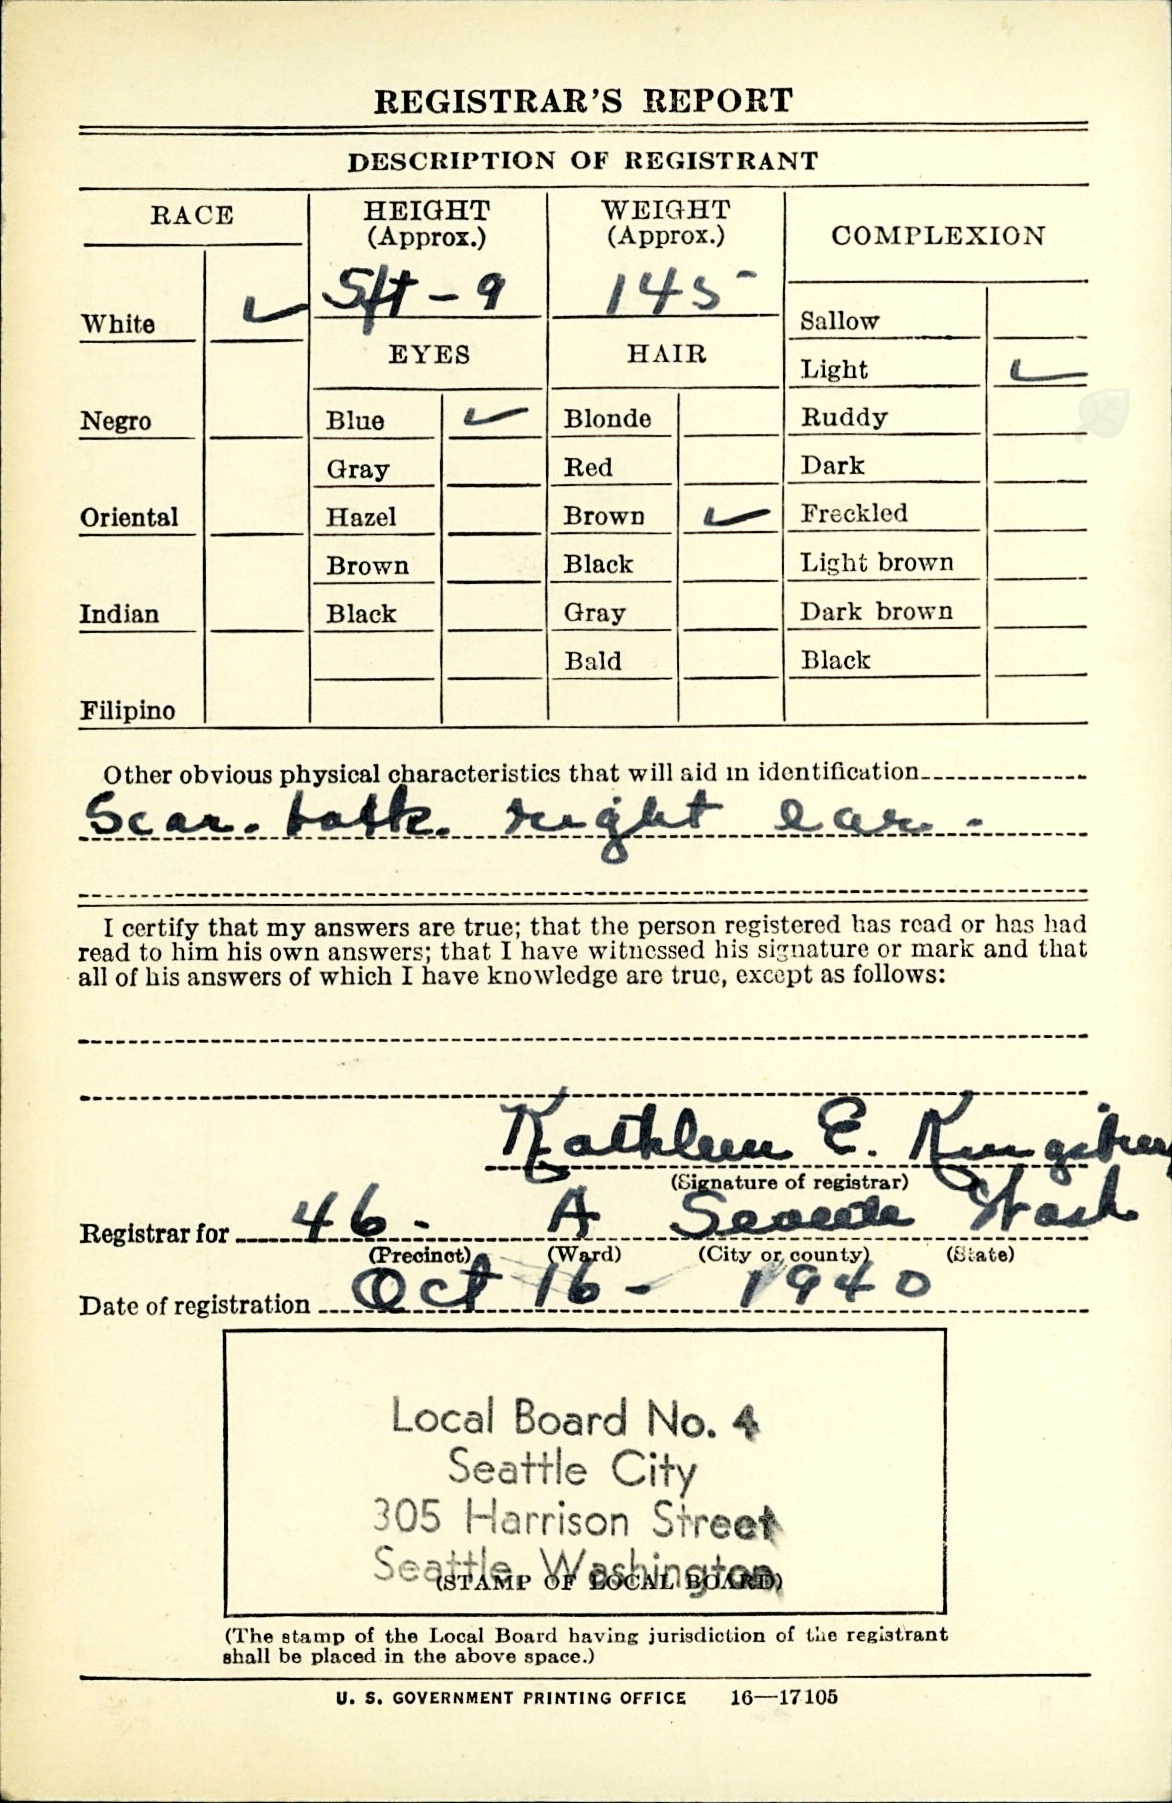 REGISTRAR'S REPORT
DESCRIPTION OF REGISTRANT
RACE
White ✓
Negro
Oriental
Indian
Filipino
HEIGHT
(Approx.)
5ft - 9
WEIGHT
(Approx.)
145
EYES
Blue ✓
Gray
Hazel
Brown
Black
HAIR
Blonde
Red
Brown ✓
Black
Gray
Bald
COMPLEXION
Sallow
Light ✓
Ruddy
Dark
Freckled
Light brown
Dark brown
Black
Other obvious physical characteristics that will aid in identification
Scar. right ear.
I certify that my answers are true; that the person registered has read or has had
read to him his own answers; that I have witnessed his signature or mark and that
all of his answers of which I have knowledge are true, except as follows:
Kathleen E. Kingsbury
(Signature of registrar)
Registrar for 46 - A Seattle Wash
(Precinct) (Ward) (City or county) (State)
Date of registration Oct 16 - 1940
Local Board No. 4
Seattle City
305 Harrison Street
Seattle, Washington
(STAMP OF LOCAL BOARD)
(The stamp of the Local Board having jurisdiction of the registrant
shall be placed in the above space.)
U. S. GOVERNMENT PRINTING OFFICE 16—17105